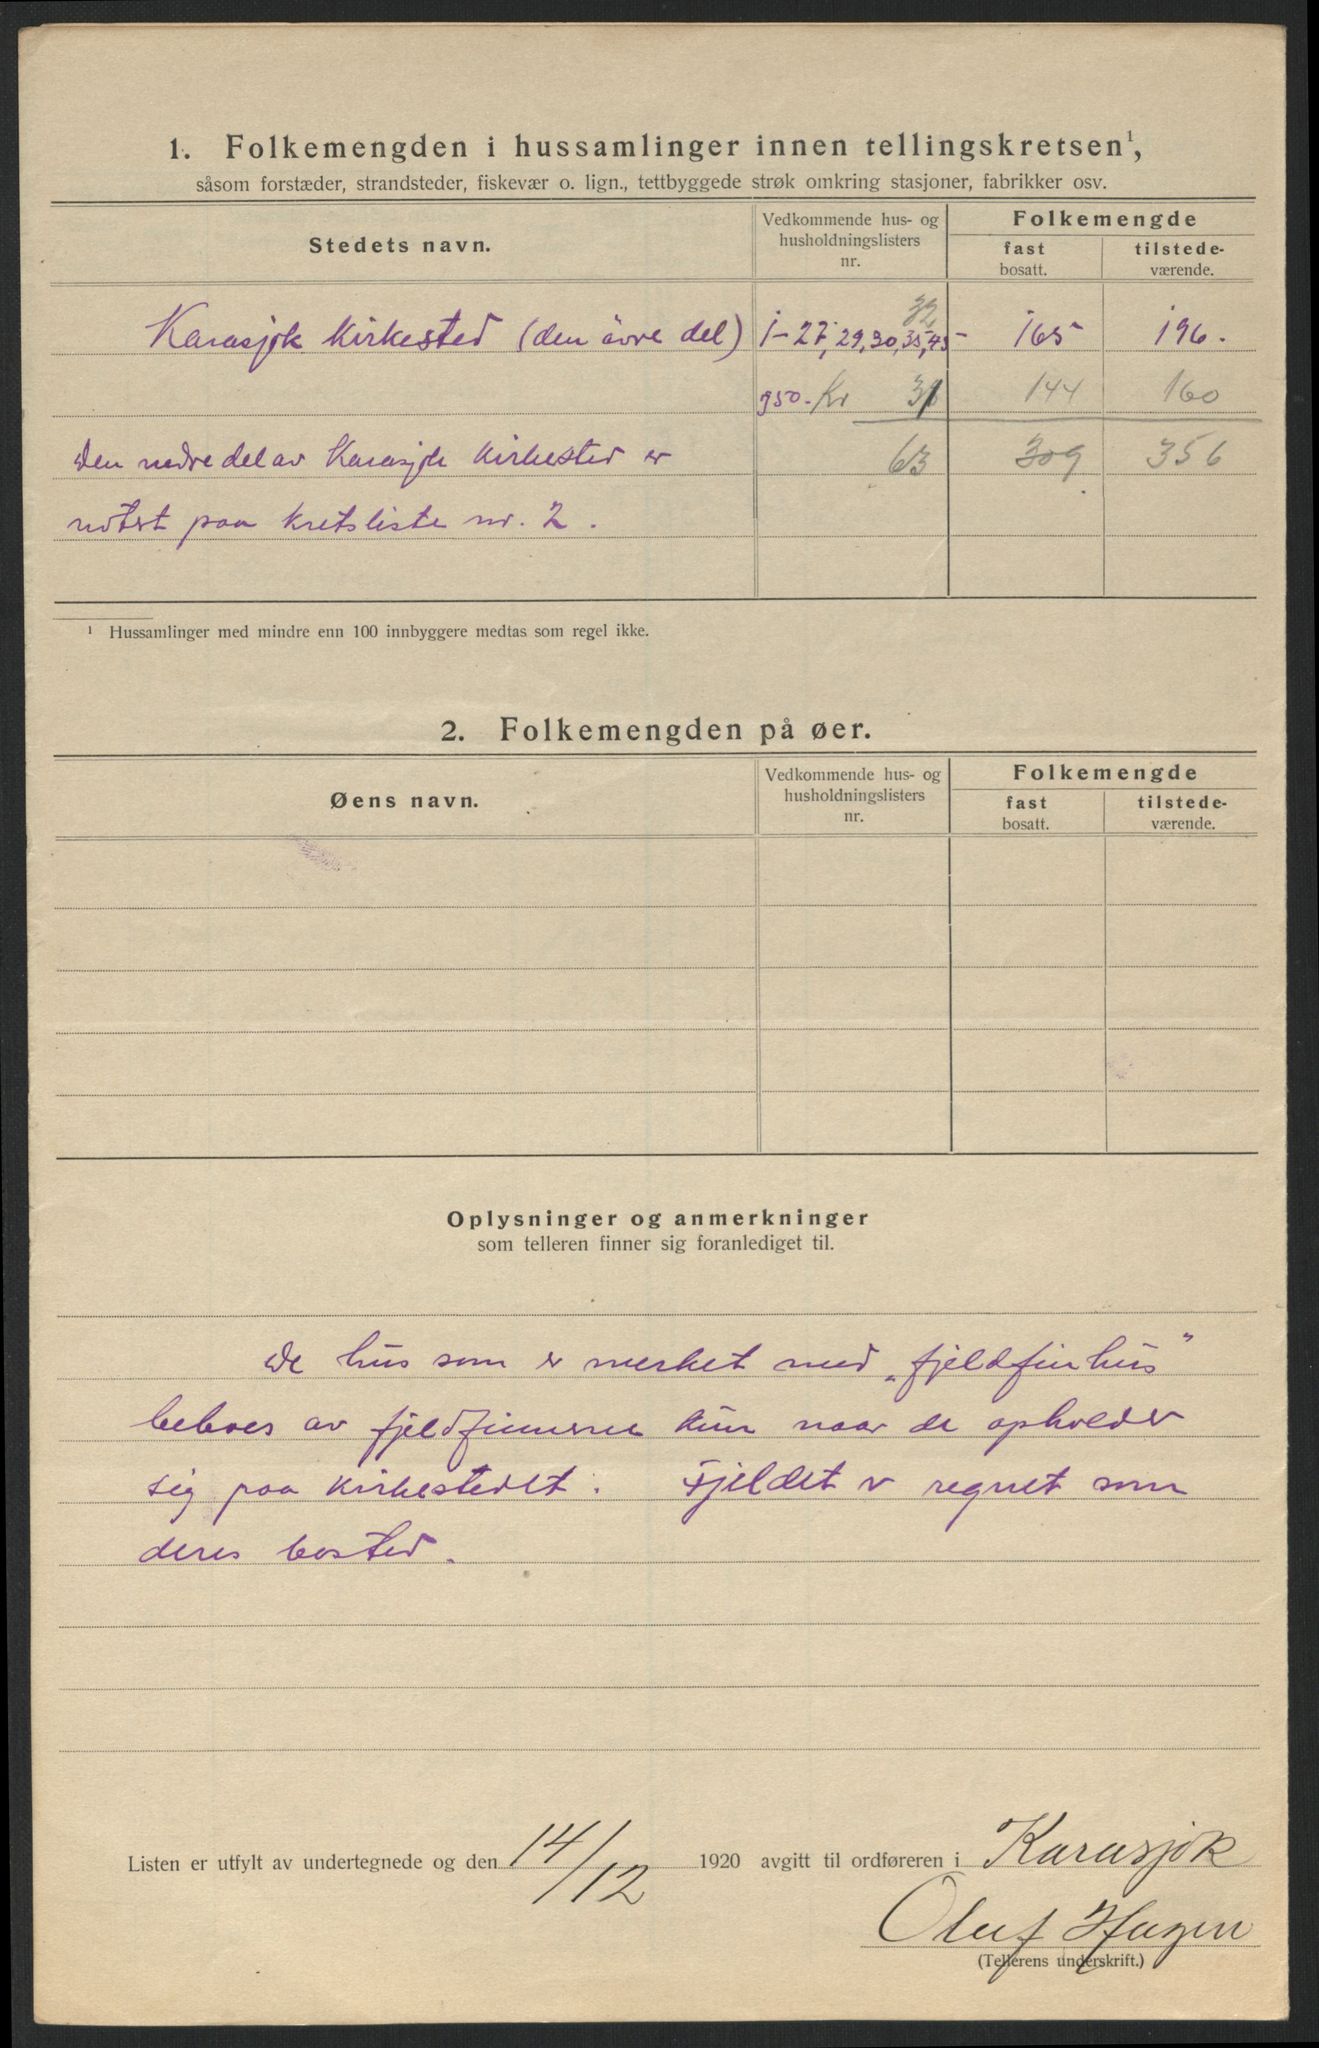 1. Folkemengden i hussamlinger innen tellingskretsen¹,
såsom forstæder, strandsteder, fiskevær o. lign., tettbyggede strøk omkring stasjoner, fabrikker osv.
Stedets navn.
Vedkommende hus- og
husholdningslisters
nr.
Folkemengde
fast
bosatt.
tilstede-
værende.
32
Karasjok Kirkested (den övre del) 1-27, 29, 30, 35, 45- 165 196.
Kr 31 144 160
Den nedre del av Karasjok Kirkested er 63 309 356
notert paa kretsliste nr. 2.
¹ Hussamlinger med mindre enn 100 innbyggere medtas som regel ikke.
2. Folkemengden på øer.
Øens navn.
Vedkommende hus- og
husholdningslisters
nr.
Folkemengde
fast
bosatt.
tilstede-
værende.
Oplysninger og anmerkninger
som telleren finner sig foranlediget til.
De hus som er merket med „fjeldfinhus"
beboes av fjeldfinnerne kun naar de opholder
sig paa kirkestedet. Fjeldet er regnet som
deres bosted.
Listen er utfylt av undertegnede og den 14/12 1920 avgitt til ordføreren i Karasjok
Oluf Hagen
(Tellerens underskrift.)